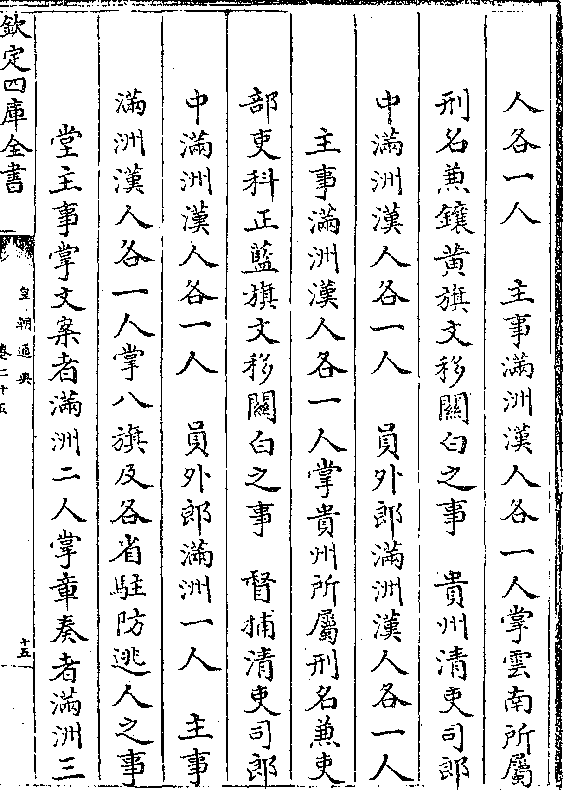 人各一人　主事滿洲漢人各一人掌雲南所屬
刑名兼鑲黄旗文移關白之事　貴州清吏司郎
中滿洲漢人各一人　員外郎滿洲漢人各一人
主事滿洲漢人各一人掌貴州所屬刑名兼吏
部吏科正藍旗文移關白之事　督捕清吏司郎
中滿洲漢人各一人　員外郎滿洲一人　主事
滿洲漢人各一人掌八旗及各省駐防逃人之事
堂主事掌文案者滿洲二人掌章奏者滿洲三
欽定四庫全書
皇朝通典
卷二十五
十五